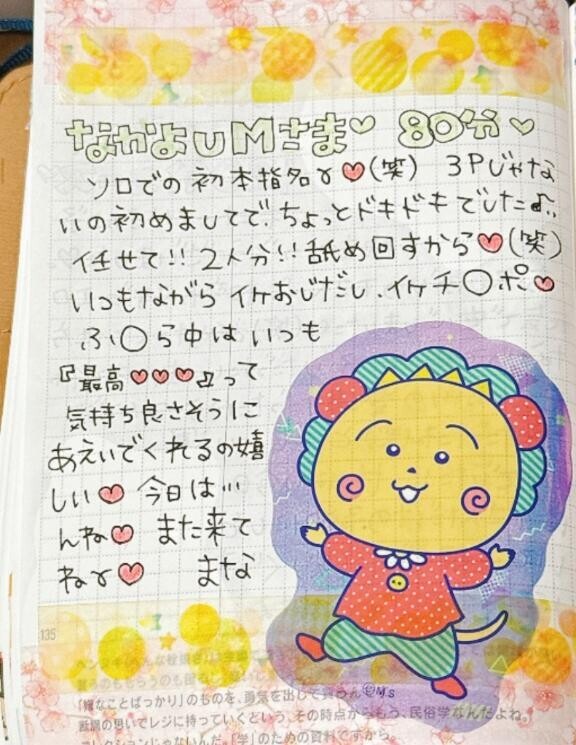 なかよしMさま♡ 80分♡
ソロでの初本指名γ♥(笑) 3Pじゃな
いの初めましてで、ちょっとドキドキでした♪
任せて!! 2人分!! 舐め回すから♥(笑)
いつもながらイケおじだし、イケチ○ポ♥
ふ○ら中はいつも
『最高♥♥♥』って
気持ち良さそうに
あえいでくれるの嬉
しい♥ 今日は…
んね♥ また来て
ねγ♥ まな
©M's
135
「嫌なことばっかり」のものを、勇気を出して買うん
断腸の思いでレジに持っていくという、その時点からもう、民俗学なんだよね。
コレクションじゃないんだ。「学」のための資料ですから。